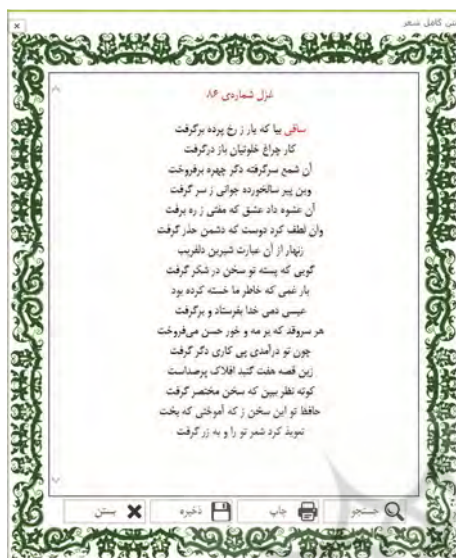 متن کامل شعر
غزل شماره‌ی ۸۶
ساقی بیا که یار ز رخ پرده برگرفت
کار چراغ خلوتیان باز درگرفت
آن شمع سرگرفته دگر چهره برفروخت
وین پیر سالخورده جوانی ز سر گرفت
آن عشوه داد عشق که مفتی ز ره برفت
وان لطف کرد دوست که دشمن حذر گرفت
زنهار از آن عبارت شیرین دلفریب
گویی که پسته تو سخن در شکر گرفت
بار غمی که خاطر ما خسته کرده بود
عیسی دمی خدا بفرستاد و برگرفت
هر سروقد که بر مه و خور حسن می‌فروخت
چون تو درآمدی پی کاری دگر گرفت
زین قصه هفت گنبد افلاک پرصداست
کوته نظر ببین که سخن مختصر گرفت
حافظ تو این سخن ز که آموختی که بخت
تعویذ کرد شعر تو را و به زر گرفت
جستجو چاپ ذخیره بستن